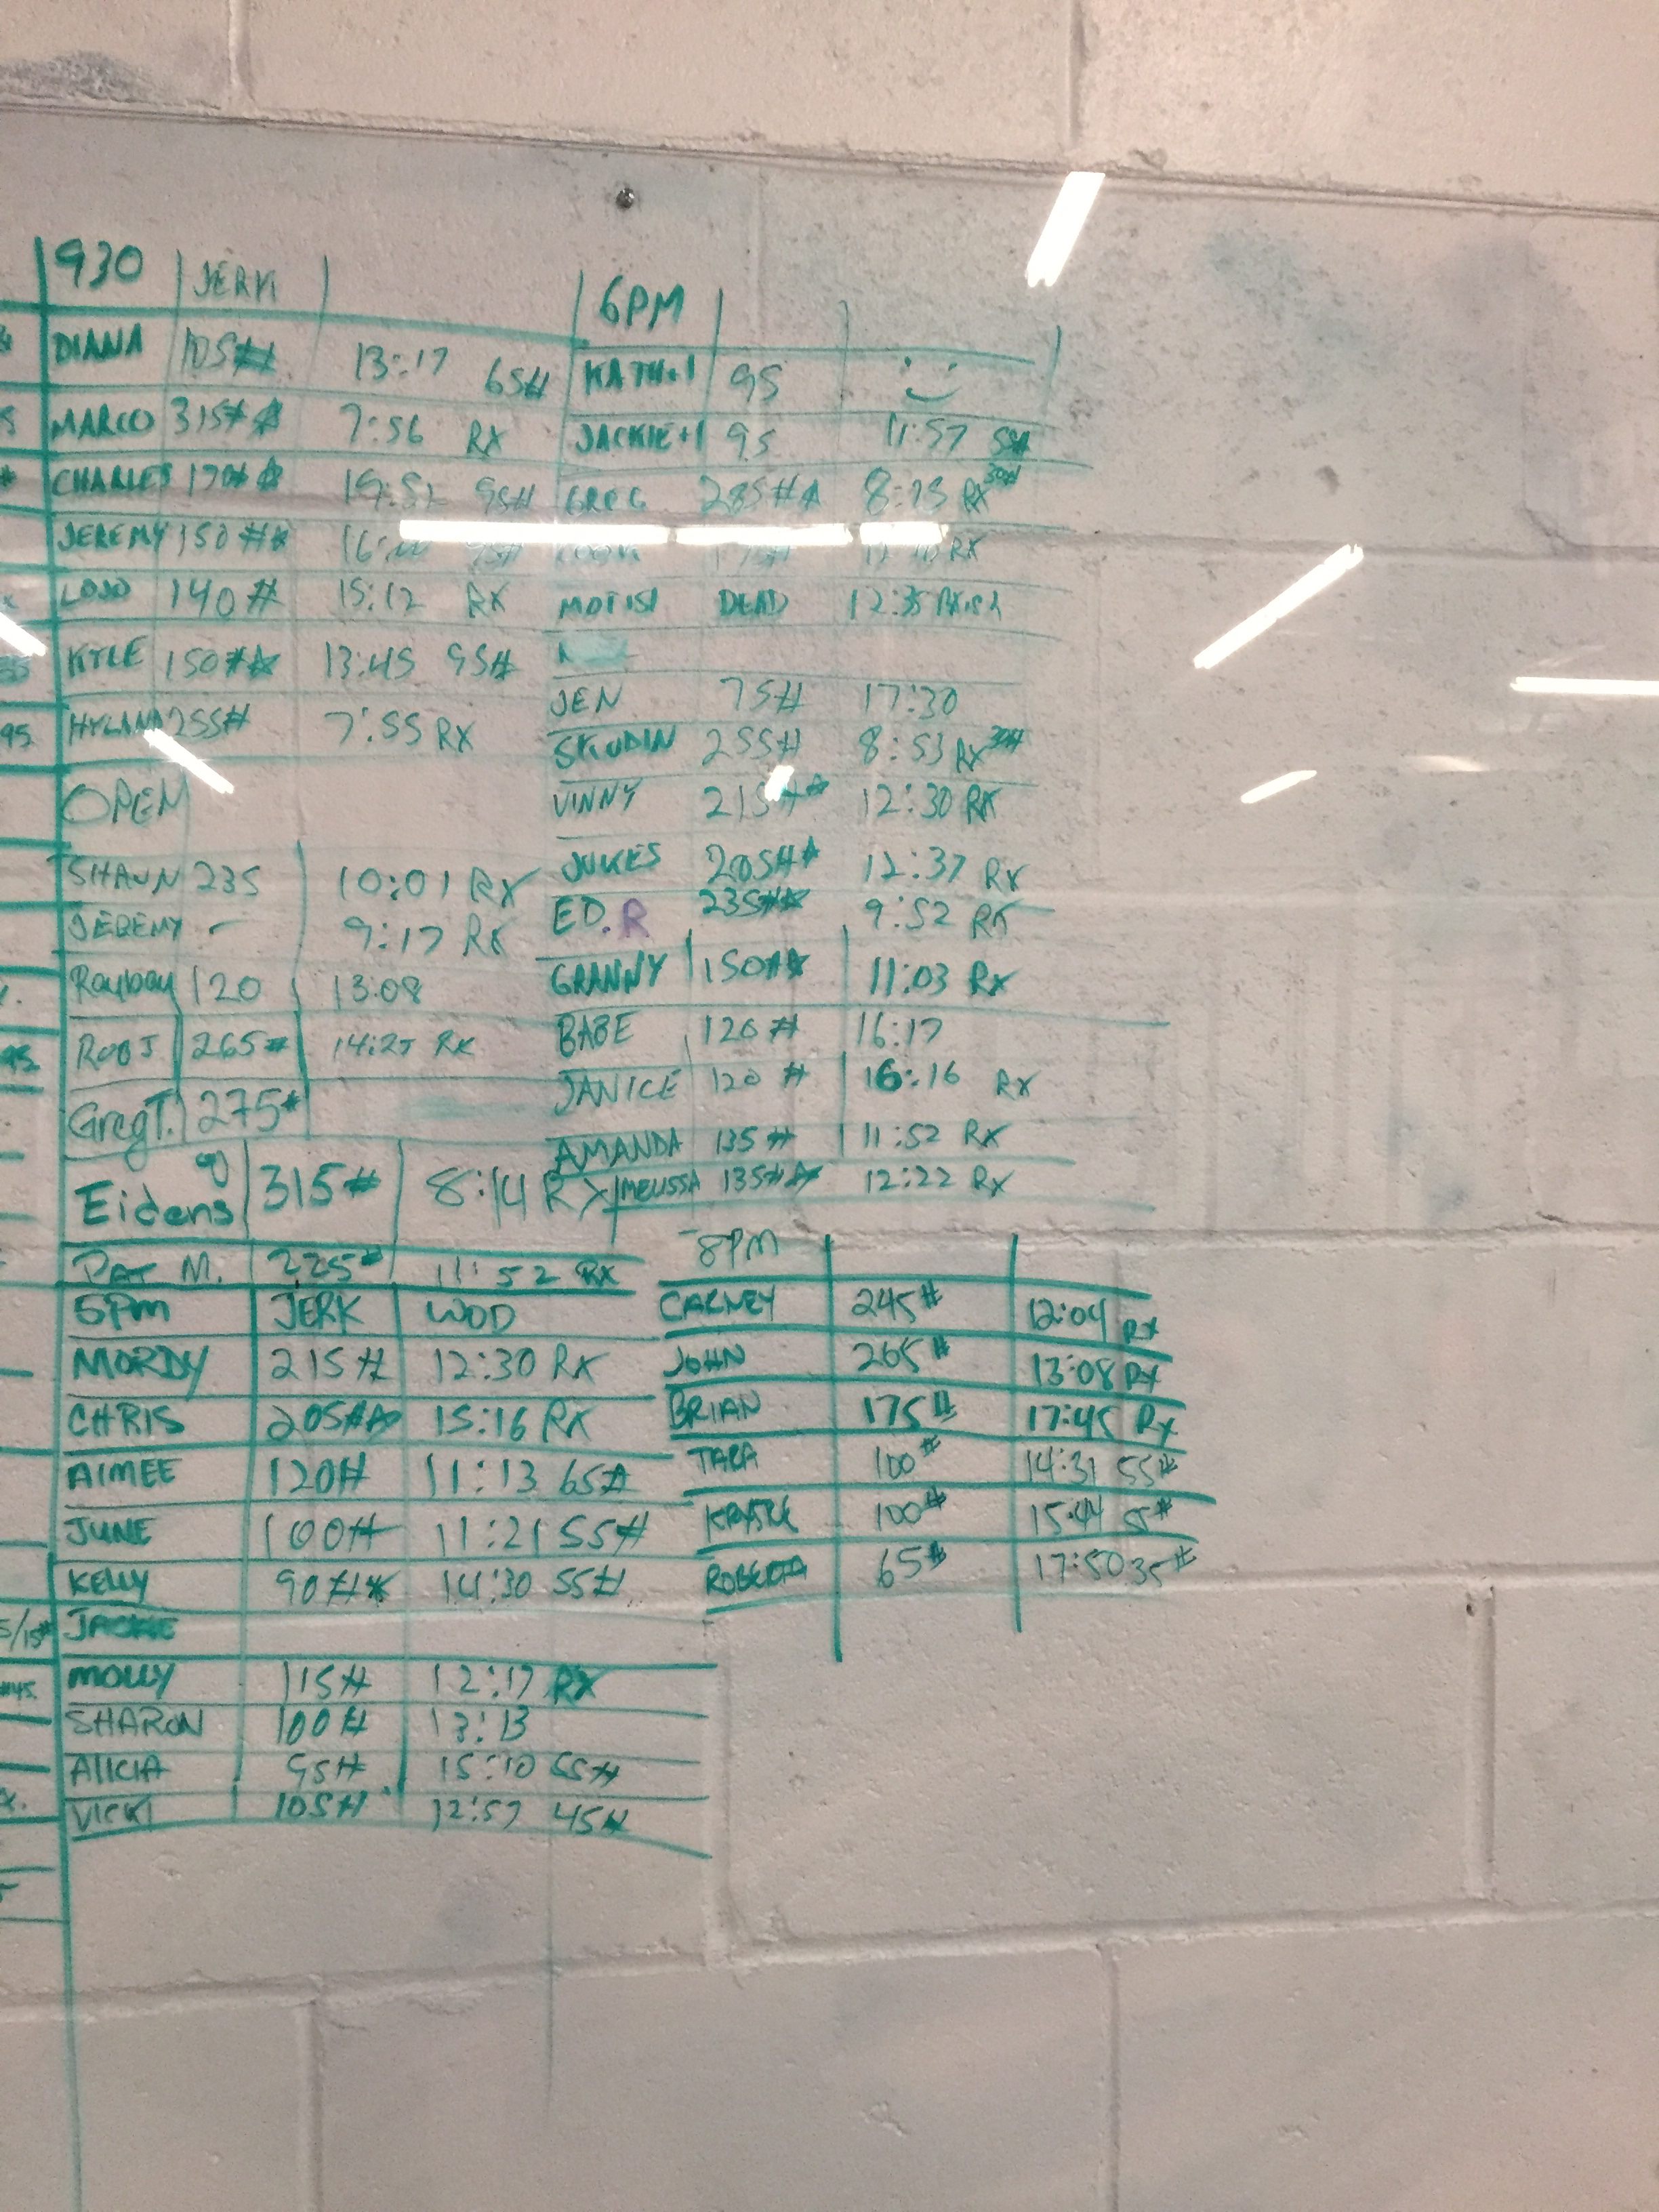 930 JERK
DIANA 105# 13:17 65#
MARCO 315# 7:56 RX
CHARLES 170# 95#
JEREMY 150#
LOJO 140# 15:12 RX
KYLE 150# 13:45 95#
HYLAND 255# 7:55 RX
OPEN
SHAUN 235 10:01 RX
JEREMY - 9:17 RX
Rayboy 120 13:08
ROB J 265# RX
Greg T. 275#
Eidens 315# 8:14 RX
PAT M. 225# 11:52 RX
5PM JERK WOD
MORDY 215# 12:30 RX
CHRIS 205# 15:16 RX
AIMEE 120# 11:13 65#
JUNE 100# 11:21 55#
KELLY 90# 14:30 55#
JACKIE
MOLLY 115# 12:17 RX
SHARON 100# 13:13
ALICIA 95# 15:10 55#
VICKI 105# 12:57 45#
6PM
KATH+1 95
JACKIE+1 95 11:57 55#
GREG 285# RX
RX
MOTISI DEAD 12:35
JEN 75# 17:30
SKUDIN 255# 8:53 RX
VINNY 215# 12:30 RX
JUKES 205# 12:37 RX
ED.R 235# 9:52 RX
GRANNY 150# 11:03 RX
BABE 120# 16:17
JANICE 120# 16:16 RX
AMANDA 135# 11:52 RX
MELISSA 135# 12:22 RX
8PM
CARNEY 245# 12:04 RX
JOHN 265# 13:08 RX
BRIAN 175# 17:45 Rx
TARA 100# 14:31 55#
100# 15:44
ROBERTA 65# 17:50 35#